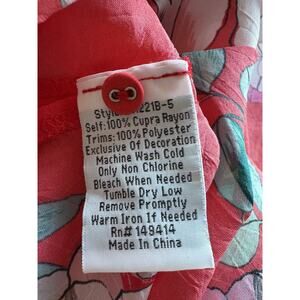 221B-5
Self:100% Cupra Rayon
Trims:100% Polyester
Exclusive Of Decoration
Machine Wash Cold
Only Non Chlorine
Bleach When Needed
Tumble Dry Low
Remove Promptly
Warm Iron If Needed
Rn# 149414
Made In China